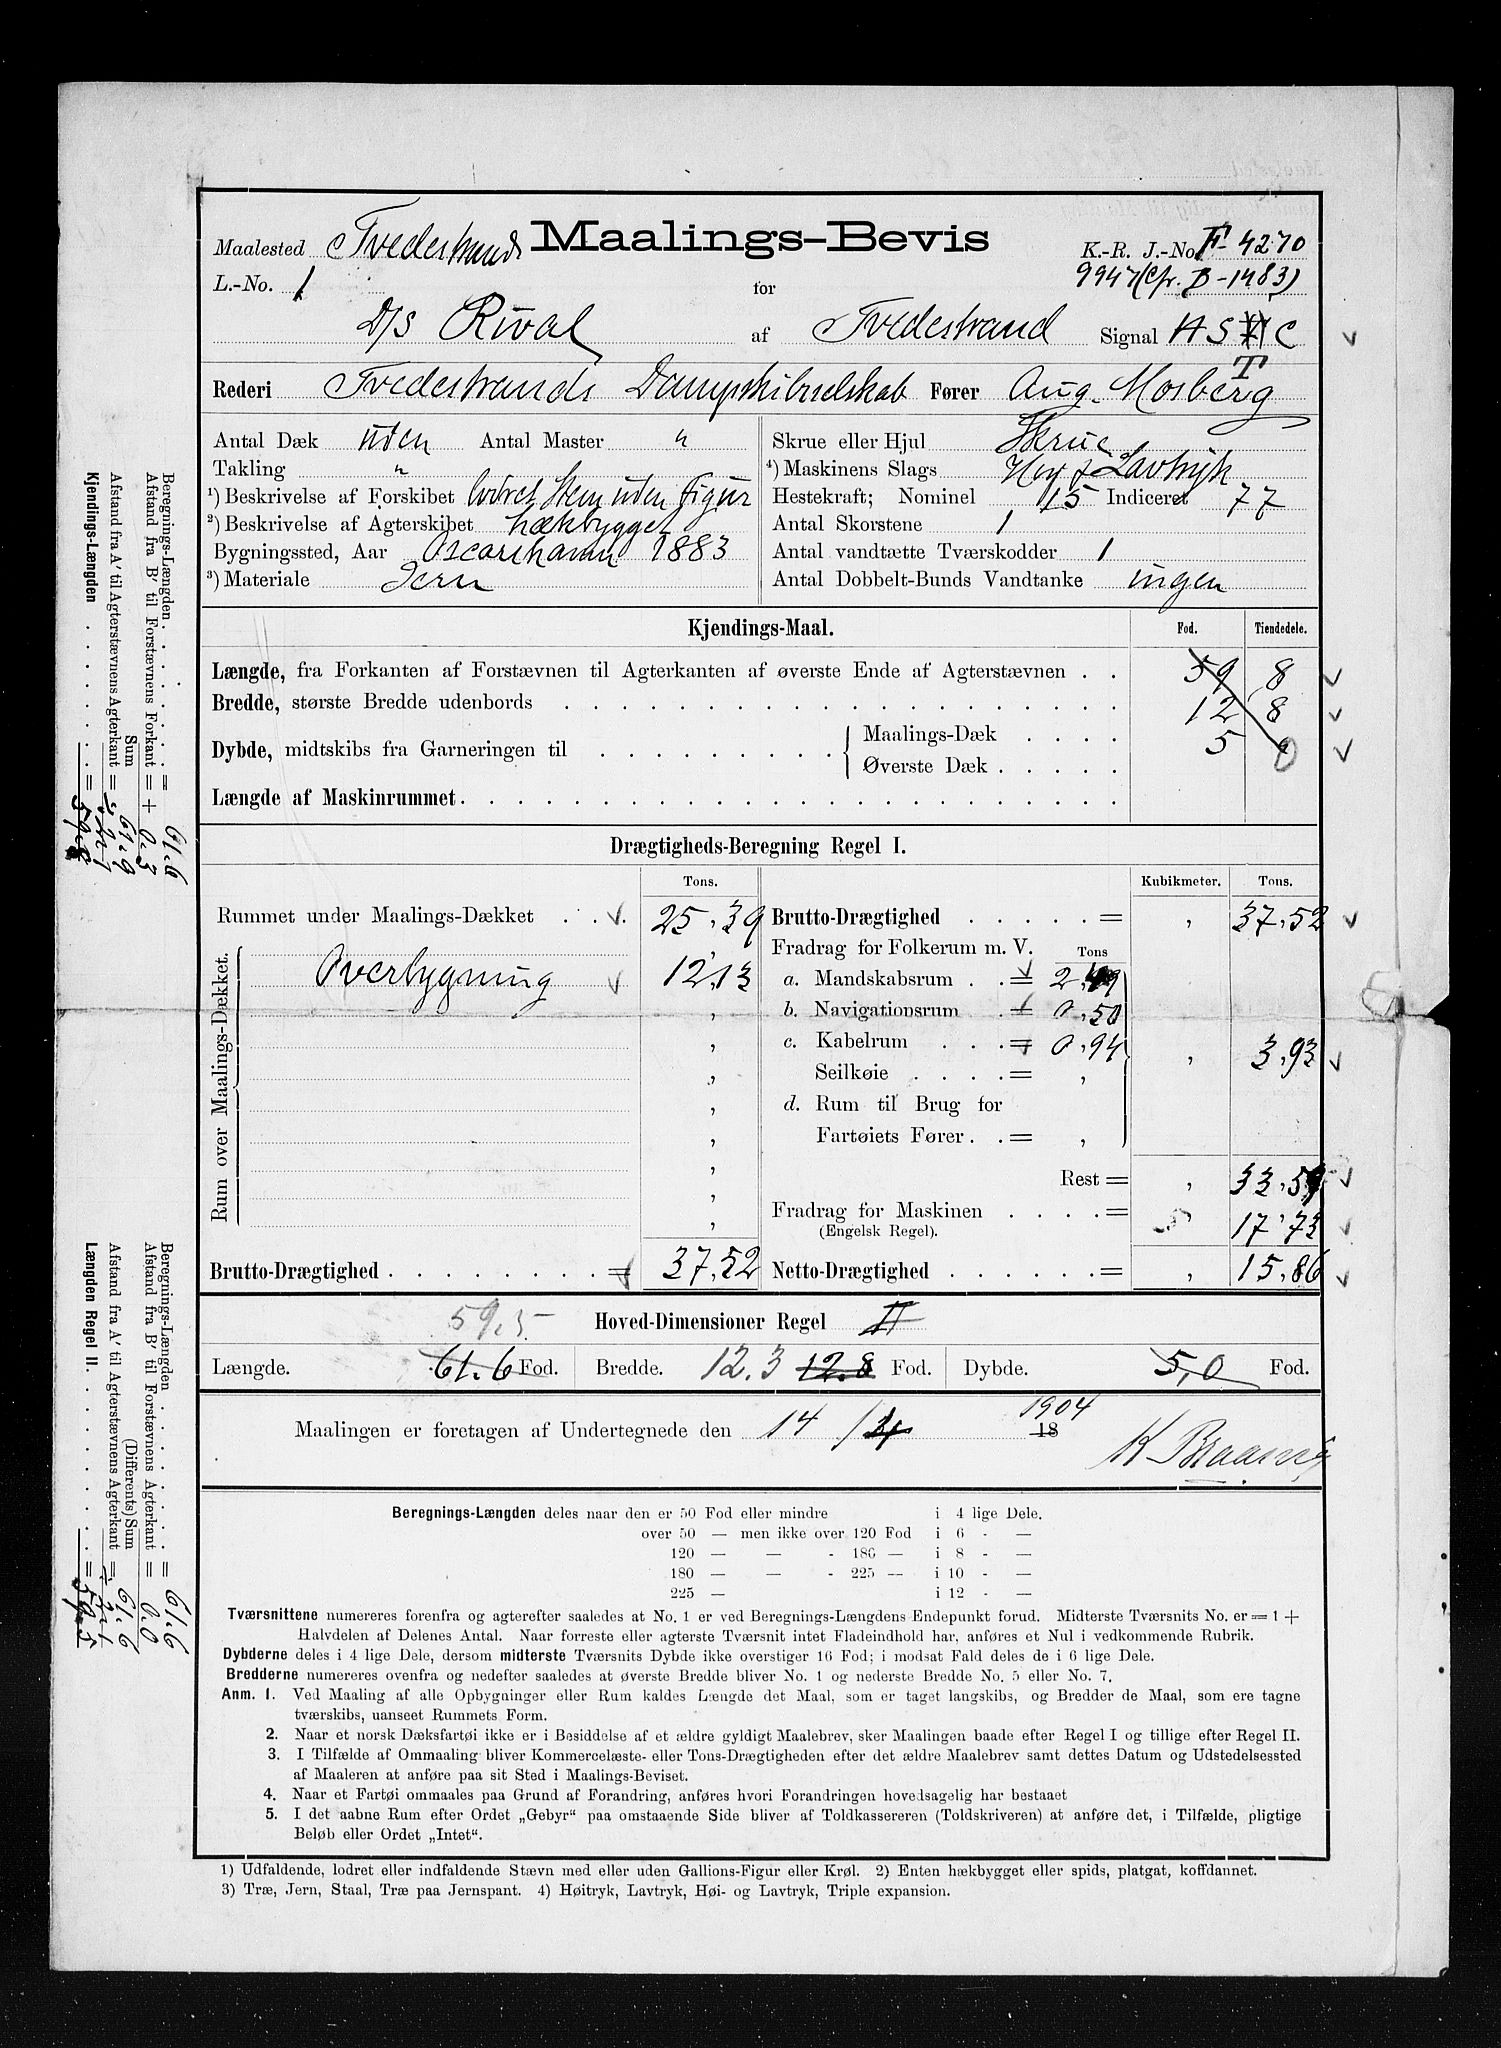 Maalings-Bevis
Maalested Tvedestrand
K.-R. J.-No. F-4270
L.-No. 1
for
9947 (cfr. B-1483)
D/S Rival af Tvedestrand Signal HS C
T
Rederi Tvedestrands Dampskibsselskab Fører Aug. Mosberg
Antal Dæk uden Antal Master "
Takling "
1) Beskrivelse af Forskibet lodret Stem uden Figur
2) Beskrivelse af Agterskibet hækbygget
Bygningssted, Aar Oscarshamn 1883
3) Materiale Jern
Skrue eller Hjul Skrue
4) Maskinens Slags Høy & Lavtryk
Hestekraft; Nominel 15 Indiceret 77
Antal Skorstene 1
Antal vandtætte Tværskodder 1
Antal Dobbelt-Bunds Vandtanke ingen
Kjendings-Maal. Fod. Tiendedele.
Længde, fra Forkanten af Forstævnen til Agterkanten af øverste Ende af Agterstævnen . . 59 8
Bredde, største Bredde udenbords 12 8
Dybde, midtskibs fra Garneringen til Maalings-Dæk . . . . 5 0
Øverste Dæk . . . .
Længde af Maskinrummet.
Drægtigheds-Beregning Regel I.
Tons.
Rummet under Maalings-Dækket . . . 25,39
Rum over Maalings-Dækket.
Overbygning 12,13
Brutto-Drægtighed = 37,52
Kubikmeter. Tons.
Brutto-Drægtighed . . . . . = , 37,52
Fradrag for Folkerum m. V. Tons
a. Mandskabsrum . . = 2,49
b. Navigationsrum . = 0,50
c. Kabelrum . . . = 0,94 , 3,93
Seilkøie . . . . = ,
d. Rum til Brug for
Fartøiets Fører . . = ,
Rest = , 33,59
Fradrag for Maskinen . . . . = , 17,73
(Engelsk Regel).
Netto-Drægtighed . . . . . . = , 15,86
59,5 Hoved-Dimensioner Regel II
Længde. 61.6 Fod. Bredde. 12.3 12.8 Fod. Dybde. 5,0 Fod.
Maalingen er foretagen af Undertegnede den 14/4 18 1904
K Braarvig
Beregnings-Længden deles naar den er 50 Fod eller mindre i 4 lige Dele.
over 50 — men ikke over 120 Fod i 6 - —
120 — — - 180 — i 8 - —
180 — — - 225 — i 10 - —
225 — i 12 - —
Tværsnittene numereres forenfra og agterefter saaledes at No. 1 er ved Beregnings-Længdens Endepunkt forud. Midterste Tværsnits No. er = 1 +
Halvdelen af Delenes Antal. Naar forreste eller agterste Tværsnit intet Fladeindhold har, anføres et Nul i vedkommende Rubrik.
Dybderne deles i 4 lige Dele, dersom midterste Tværsnits Dybde ikke overstiger 16 Fod; i modsat Fald deles de i 6 lige Dele.
Bredderne numereres ovenfra og nedefter saaledes at øverste Bredde bliver No. 1 og nederste Bredde No. 5 eller No. 7.
Anm. 1. Ved Maaling af alle Opbygninger eller Rum kaldes Længde det Maal, som er taget langskibs, og Bredder de Maal, som ere tagne
tværskibs, uanseet Rummets Form.
2. Naar et norsk Dæksfartøi ikke er i Besiddelse af et ældre gyldigt Maalebrev, sker Maalingen baade efter Regel I og tillige efter Regel II.
3. I Tilfælde af Ommaaling bliver Kommercelæste- eller Tons-Drægtigheden efter det ældre Maalebrev samt dettes Datum og Udstedelsessted
af Maaleren at anføre paa sit Sted i Maalings-Beviset.
4. Naar et Fartøi ommaales paa Grund af Forandring, anføres hvori Forandringen hovedsagelig har bestaaet
5. I det aabne Rum efter Ordet „Gebyr“ paa omstaaende Side bliver af Toldkassereren (Toldskriveren) at anføre det, i Tilfælde, pligtige
Beløb eller Ordet „Intet“.
1) Udfaldende, lodret eller indfaldende Stævn med eller uden Gallions-Figur eller Krøl. 2) Enten hækbygget eller spids, platgat, koffdannet.
3) Træ, Jern, Staal, Træ paa Jernspant. 4) Høitryk, Lavtryk, Høi- og Lavtryk, Triple expansion.
Beregnings-Længden = 61.6
Afstand fra B' til Forstævnens Forkant = + 0.3
Sum 61.9
Afstand fra A' til Agterstævnens Agterkant = 2.1
Kjendings-Længden = 59.8
Beregnings-Længden = 61.6
Afstand fra B' til Forstævnens Agterkant = 0.0
(Differents) Sum 61.6
Afstand fra A' til Agterstævnens Agterkant = 2.1
Længden Regel II. = 59.5